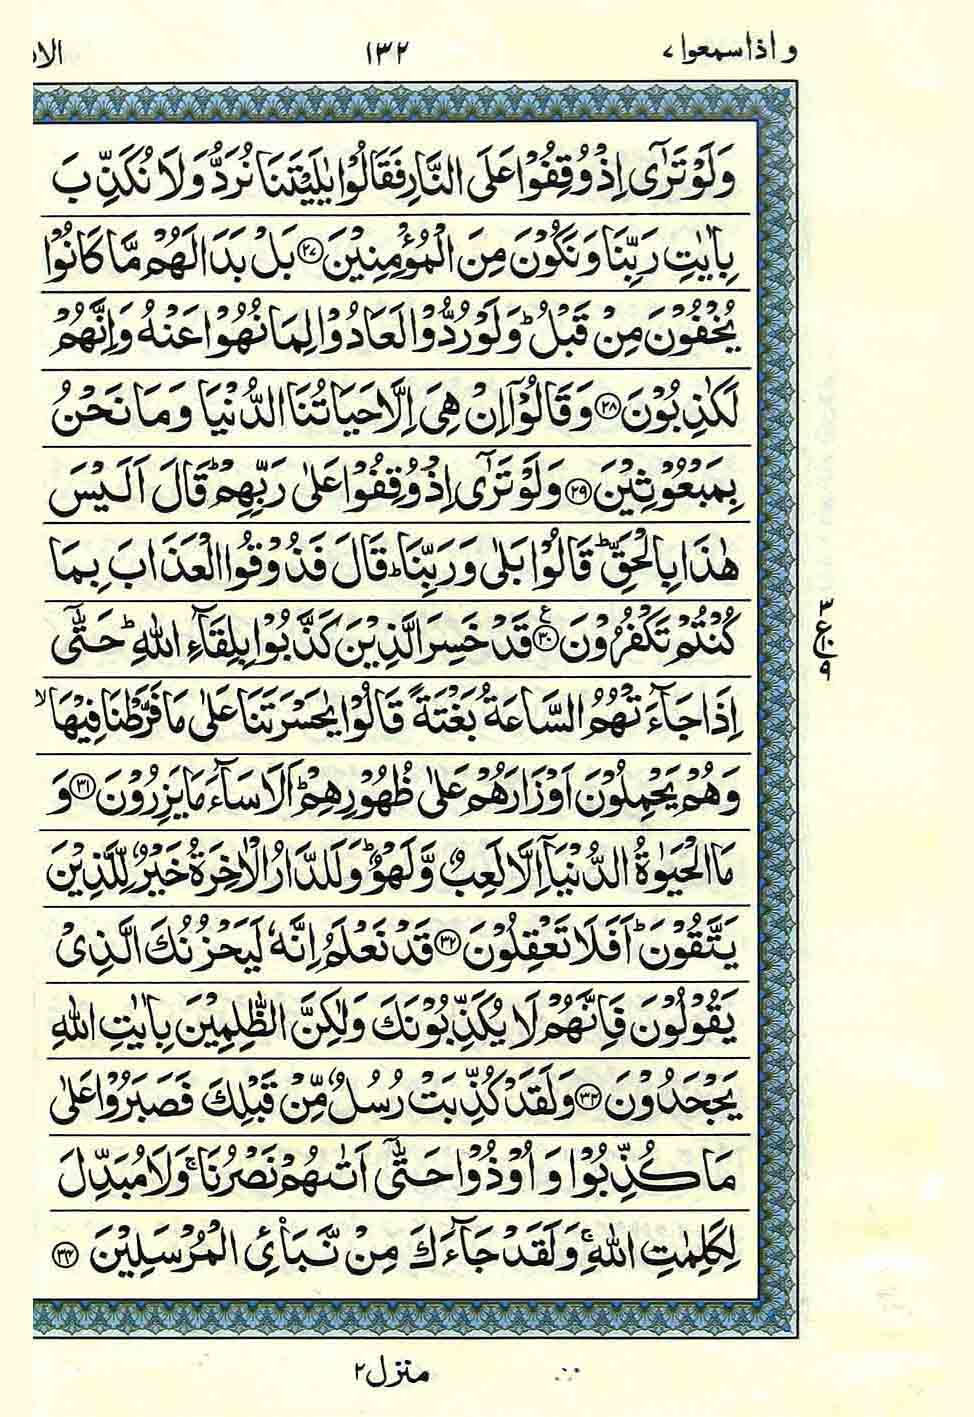 و اذا سمعوا ٧ ١٣٢ الان
وَلَوْ تَرٰٓى اِذْ وُقِفُوْا عَلَى النَّارِ فَقَالُوْا يٰلَيْتَنَا نُرَدُّ وَلَا نُكَذِّبَ
بِاٰيٰتِ رَبِّنَا وَنَكُوْنَ مِنَ الْمُؤْمِنِيْنَ ﴿٢٧﴾ بَلْ بَدَا لَهُمْ مَّا كَانُوْا
يُخْفُوْنَ مِنْ قَبْلُ ؕ وَلَوْ رُدُّوْا لَعَادُوْا لِمَا نُهُوْا عَنْهُ وَاِنَّهُمْ
لَكٰذِبُوْنَ ﴿٢٨﴾ وَقَالُوْۤا اِنْ هِىَ اِلَّا حَيَاتُنَا الدُّنْيَا وَمَا نَحْنُ
بِمَبْعُوْثِيْنَ ﴿٢٩﴾ وَلَوْ تَرٰٓى اِذْ وُقِفُوْا عَلٰى رَبِّهِمْ ؕ قَالَ اَلَيْسَ
هٰذَا بِالْحَقِّ ؕ قَالُوْا بَلٰى وَرَبِّنَا ؕ قَالَ فَذُوْقُوا الْعَذَابَ بِمَا
كُنْتُمْ تَكْفُرُوْنَ ﴿٣٠﴾ قَدْ خَسِرَ الَّذِيْنَ كَذَّبُوْا بِلِقَآءِ اللّٰهِ ؕ حَتّٰٓى
اِذَا جَآءَتْهُمُ السَّاعَةُ بَغْتَةً قَالُوْا يٰحَسْرَتَنَا عَلٰى مَا فَرَّطْنَا فِيْهَا ۙ
وَهُمْ يَحْمِلُوْنَ اَوْزَارَهُمْ عَلٰى ظُهُوْرِهِمْ ؕ اَلَا سَآءَ مَا يَزِرُوْنَ ﴿٣١﴾ وَ
مَا الْحَيٰوةُ الدُّنْيَاۤ اِلَّا لَعِبٌ وَّلَهْوٌ ؕ وَلَلدَّارُ الْاٰخِرَةُ خَيْرٌ لِّلَّذِيْنَ
يَتَّقُوْنَ ؕ اَفَلَا تَعْقِلُوْنَ ﴿٣٢﴾ قَدْ نَعْلَمُ اِنَّهٗ لَيَحْزُنُكَ الَّذِىْ
يَقُوْلُوْنَ فَاِنَّهُمْ لَا يُكَذِّبُوْنَكَ وَلٰكِنَّ الظّٰلِمِيْنَ بِاٰيٰتِ اللّٰهِ
يَجْحَدُوْنَ ﴿٣٣﴾ وَلَقَدْ كُذِّبَتْ رُسُلٌ مِّنْ قَبْلِكَ فَصَبَرُوْا عَلٰى
مَا كُذِّبُوْا وَاُوْذُوْا حَتّٰٓى اَتٰىهُمْ نَصْرُنَا ۚ وَلَا مُبَدِّلَ
لِكَلِمٰتِ اللّٰهِ ۚ وَلَقَدْ جَآءَكَ مِنْ نَّبَاِى الْمُرْسَلِيْنَ ﴿٣٤﴾
٣
ع ١٠
٩
منزل ٢